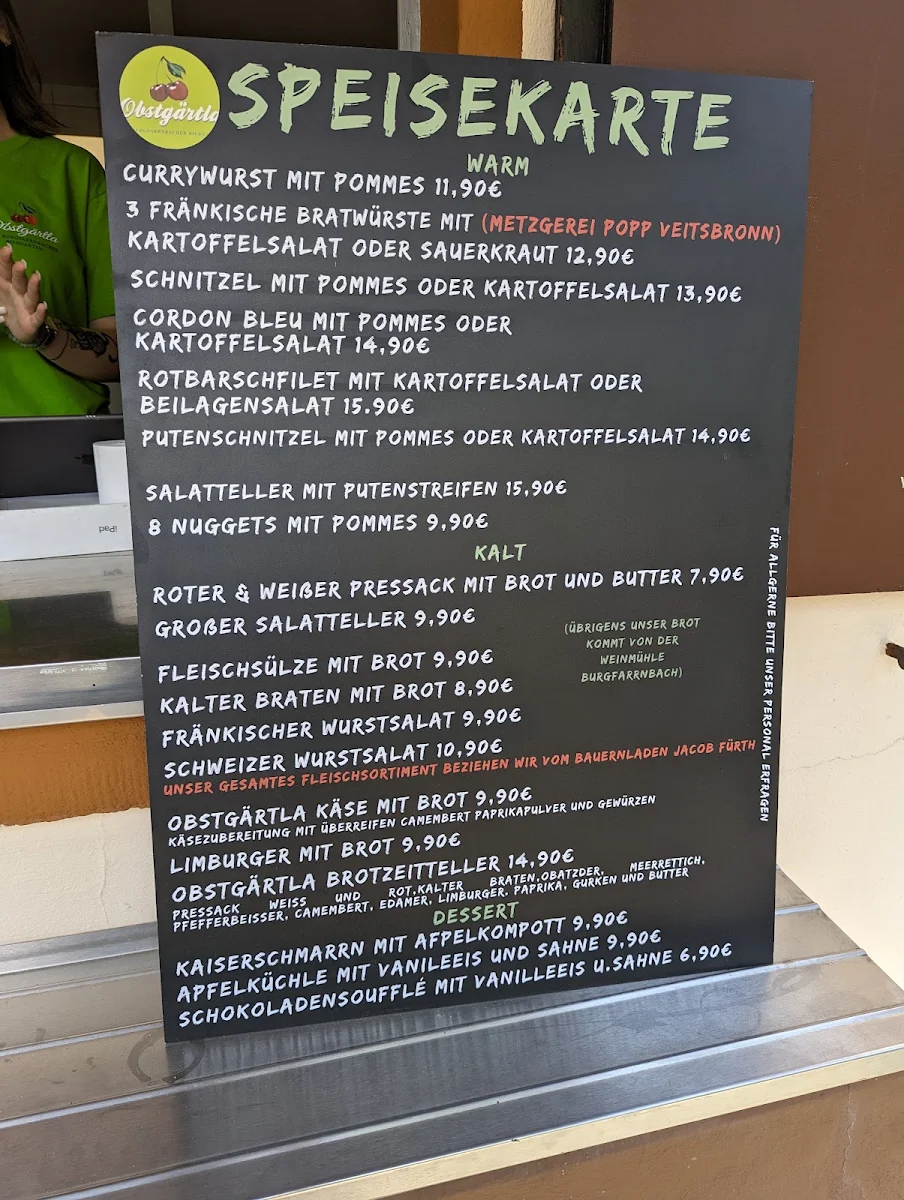 Obstgärtla
SPEISEKARTE
WARM
CURRYWURST MIT POMMES 11,90€
3 FRÄNKISCHE BRATWÜRSTE MIT (METZGEREI POPP VEITSBRONN)
KARTOFFELSALAT ODER SAUERKRAUT 12,90€
SCHNITZEL MIT POMMES ODER KARTOFFELSALAT 13,90€
CORDON BLEU MIT POMMES ODER
KARTOFFELSALAT 14,90€
ROTBARSCHFILET MIT KARTOFFELSALAT ODER
BEILAGENSALAT 15.90€
PUTENSCHNITZEL MIT POMMES ODER KARTOFFELSALAT 14,90€
SALATTELLER MIT PUTENSTREIFEN 15,90€
8 NUGGETS MIT POMMES 9,90€
KALT
ROTER & WEIßER PRESSACK MIT BROT UND BUTTER 7,90€
GROßER SALATTELLER 9,90€
(ÜBRIGENS UNSER BROT
KOMMT VON DER
WEINMÜHLE
BURGFARRNBACH)
FLEISCHSÜLZE MIT BROT 9,90€
KALTER BRATEN MIT BROT 8,90€
FRÄNKISCHER WURSTSALAT 9,90€
SCHWEIZER WURSTSALAT 10,90€
UNSER GESAMTES FLEISCHSORTIMENT BEZIEHEN WIR VOM BAUERNLADEN JACOB FÜRTH
OBSTGÄRTLA KÄSE MIT BROT 9,90€
KÄSEZUBEREITUNG MIT ÜBERREIFEN CAMEMBERT PAPRIKAPULVER UND GEWÜRZEN
LIMBURGER MIT BROT 9,90€
OBSTGÄRTLA BROTZEITTELLER 14,90€
PRESSACK WEISS UND ROT,KALTER BRATEN,OBATZDER, MEERRETTICH,
PFEFFERBEISSER, CAMEMBERT, EDAMER, LIMBURGER, PAPRIKA, GURKEN UND BUTTER
DESSERT
KAISERSCHMARRN MIT AFPELKOMPOTT 9,90€
APFELKÜCHLE MIT VANILEEIS UND SAHNE 9,90€
SCHOKOLADENSOUFFLÉ MIT VANILLEEIS U.SAHNE 6,90€
FÜR ALLGERNE BITTE UNSER PERSONAL ERFRAGEN
Obstgärtla
iPad